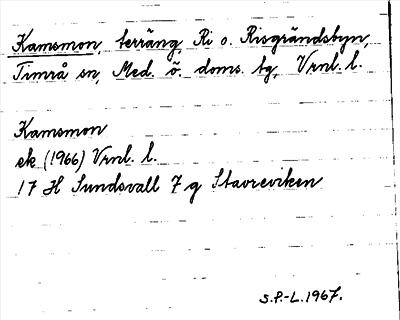 Kamsmon, terräng, Ri o. Risgrändsbyn,
Timrå sn, Med. ö. doms. tg, Vrnl. l.
Kamsmon
ek (1966) Vrnl. l.
17 H Sundsvall 7 g Stavreviken
S.P.-L. 1967.